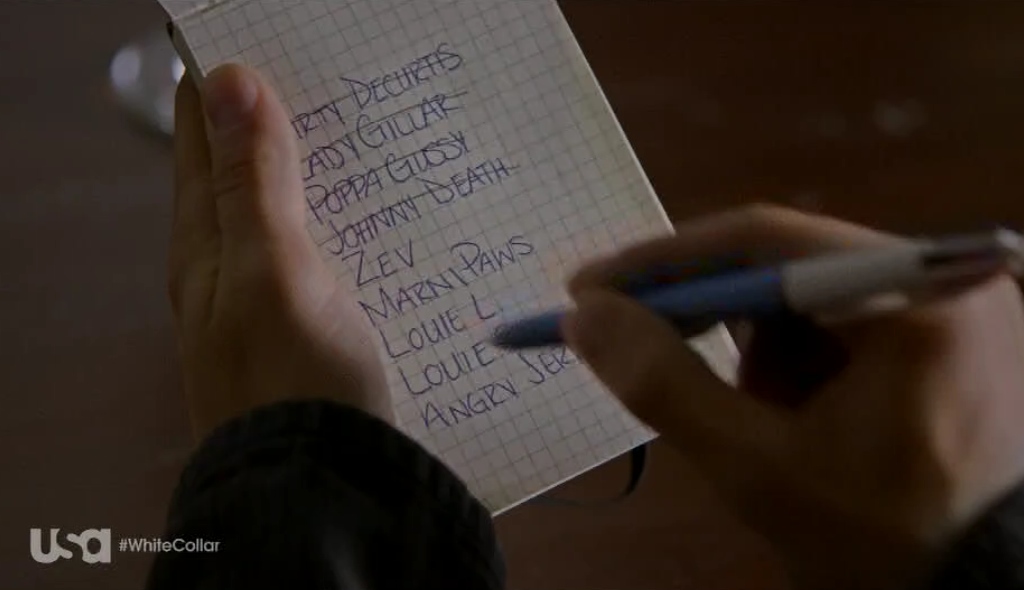 RTY DECURTIS
ADY GILLAR
POPPA GUSSY
JOHNNY DEATH
ZEV
MARNI PAWS
LOUIE L.
LOUIE
ANGRY JER
usa #WhiteCollar